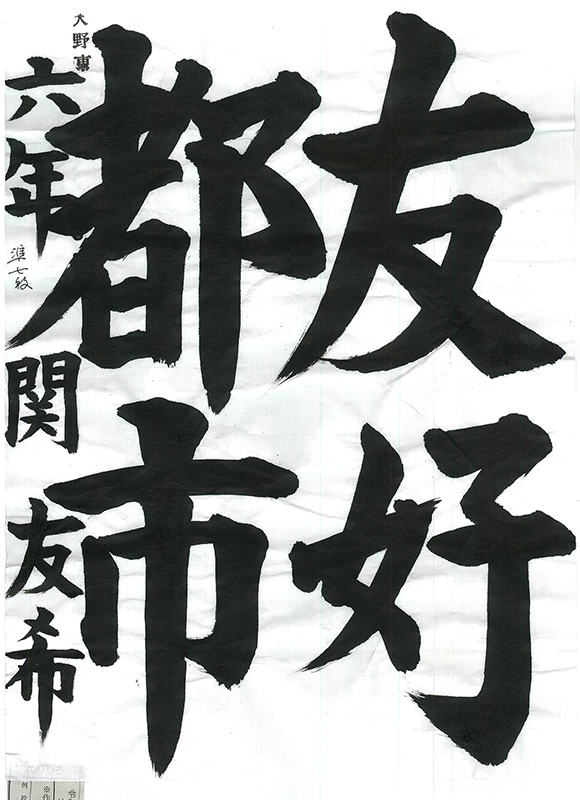 友好
都市
大野東
六年 関 友希
準七段